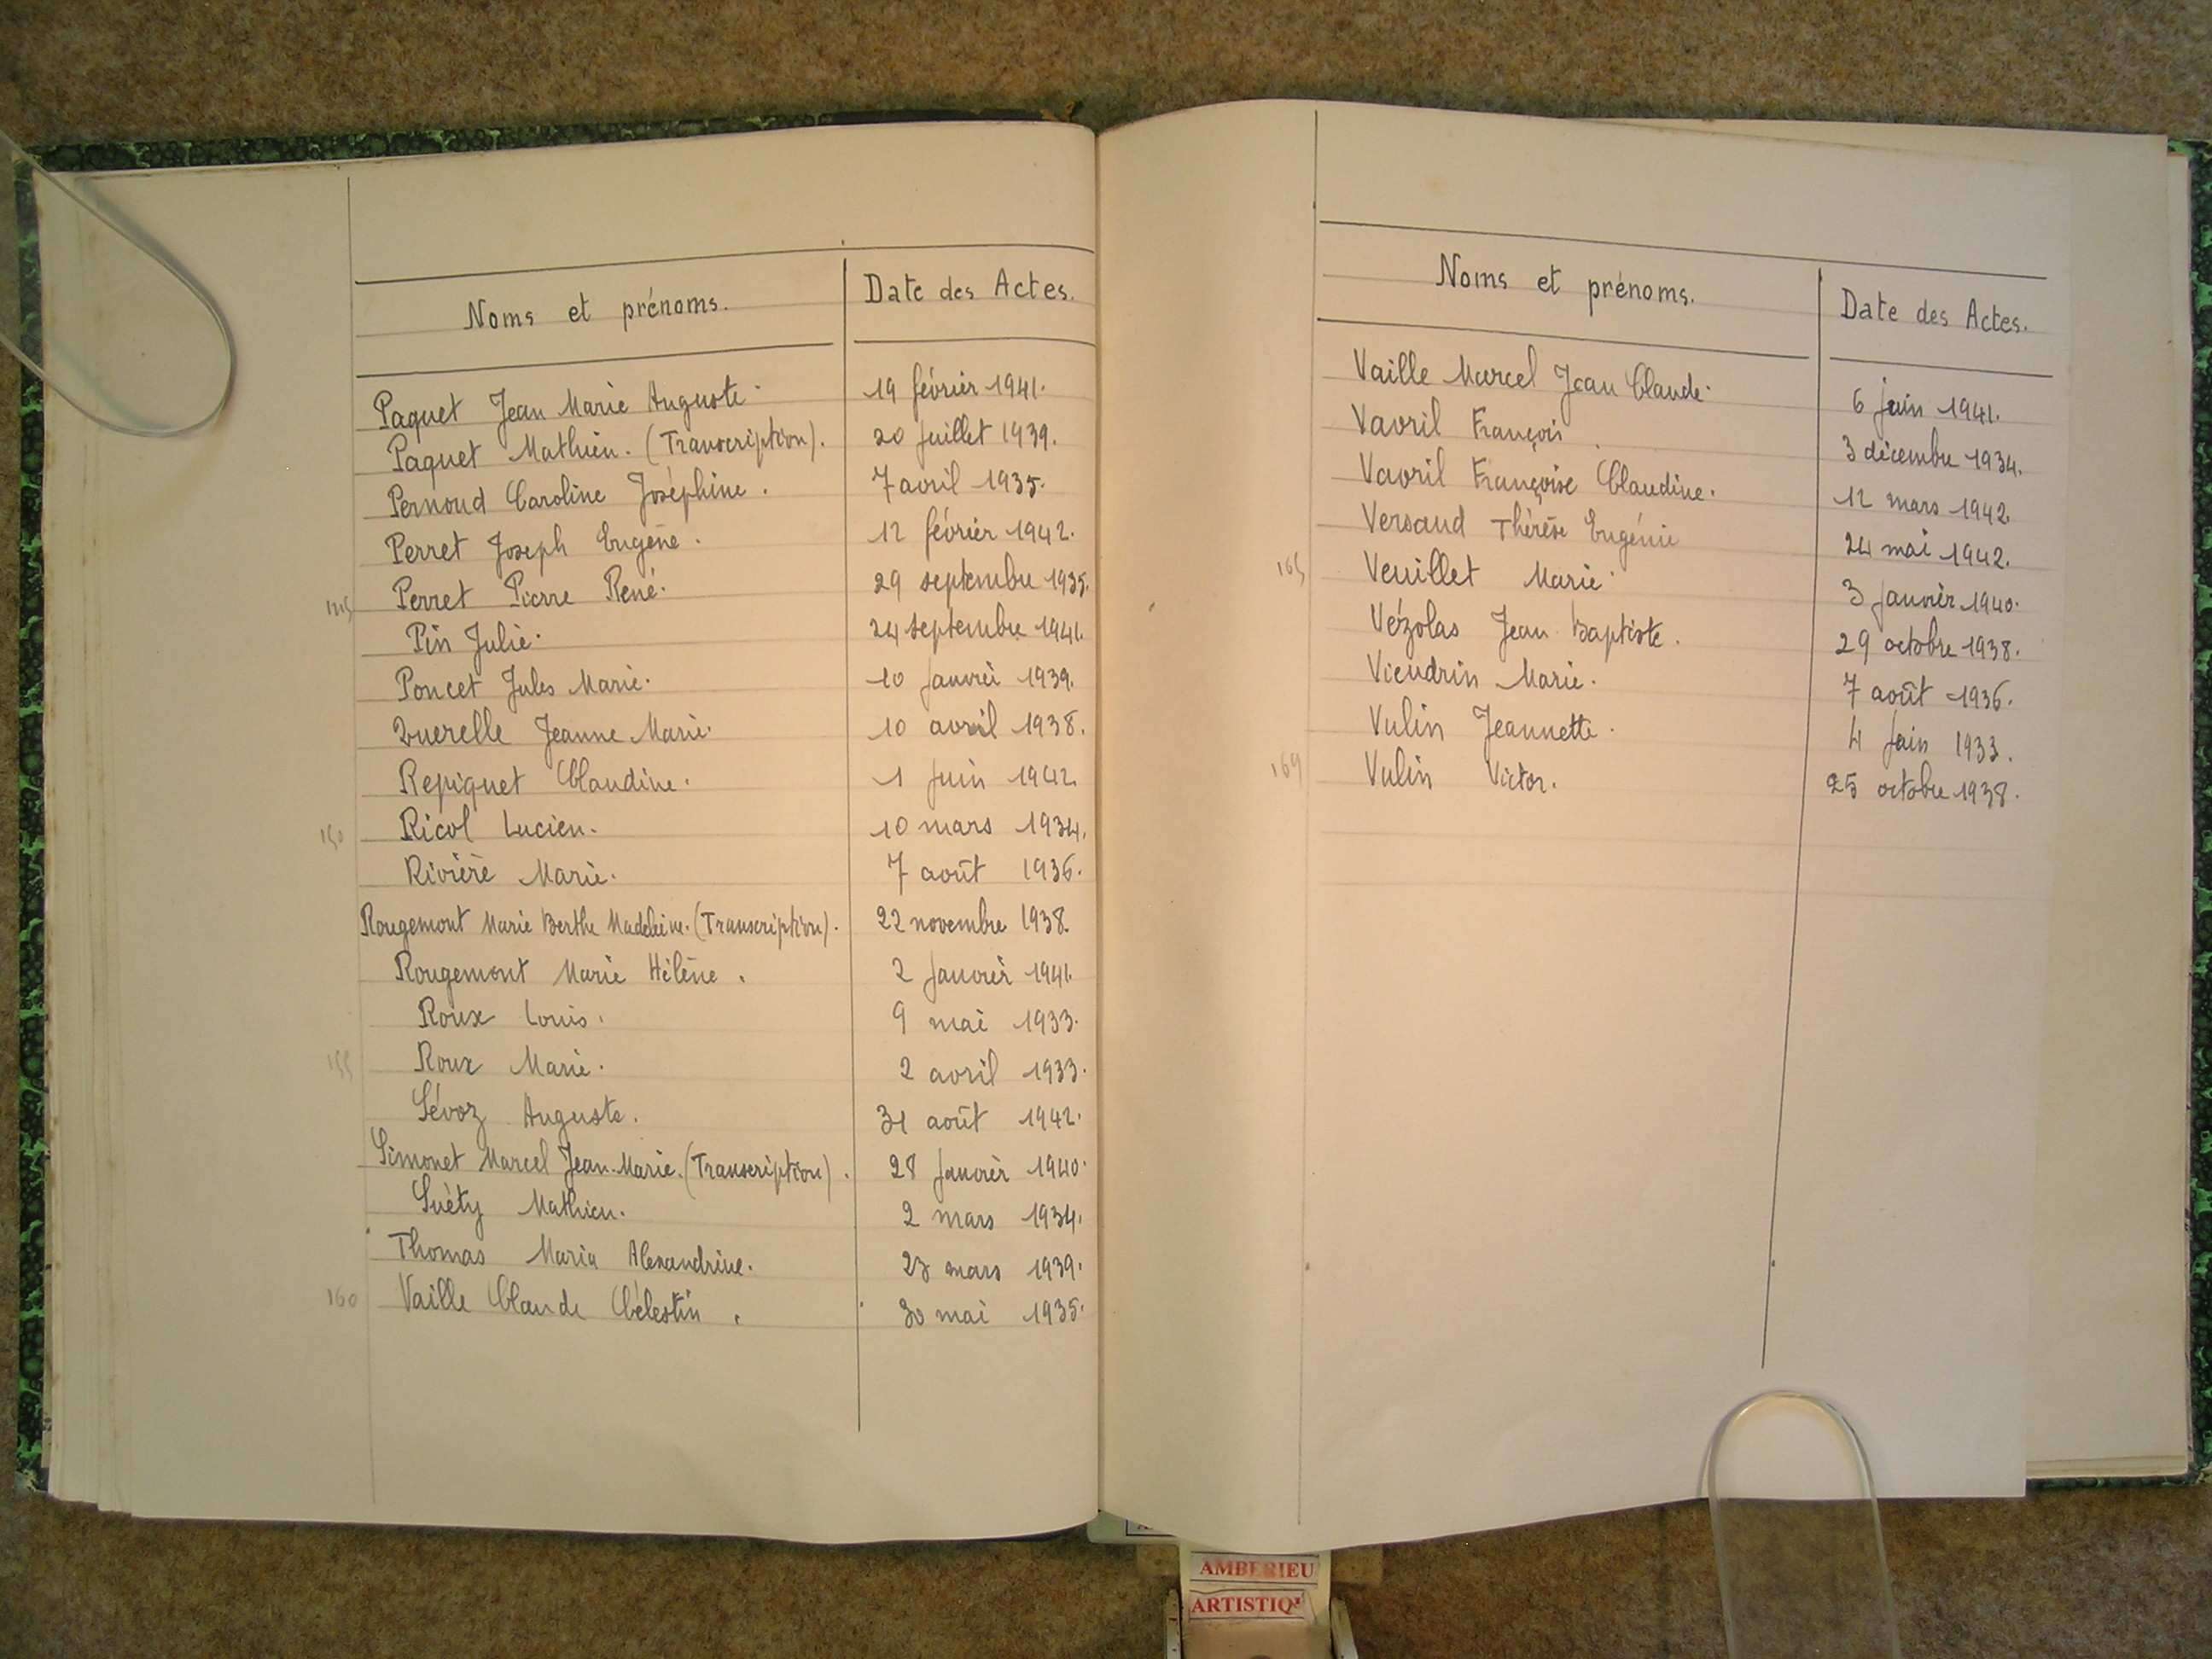 Noms et prénoms. Date des Actes.
Paquet Jean Marie Auguste. 19 février 1941.
Paquet Mathieu. (Transcription). 20 juillet 1939.
Pernoud Caroline Joséphine. 7 avril 1935.
Perret Joseph Eugène. 12 février 1942.
145 Perret Pierre René. 29 septembre 1935.
Pin Julie. 24 septembre 1941.
Poncet Jules Marie. 10 janvier 1939.
Querelle Jeanne Marie. 10 avril 1938.
Repiquet Claudine. 1 juin 1942.
150 Ricol Lucien. 10 mars 1934.
Rivière Marie. 7 août 1936.
Rougemont Marie Berthe Madeleine. (Transcription). 22 novembre 1938.
Rougemont Marie Hélène. 2 janvier 1941.
Roux Louis. 9 mai 1933.
155 Roux Marie. 2 avril 1933.
Sévoz Auguste. 31 août 1942.
Simonet Marcel Jean-Marie. (Transcription). 28 janvier 1940.
Suèty Mathieu. 2 mars 1934.
Thomas Maria Alexandrine. 23 mars 1939.
160 Vaille Claude Célestin. 30 mai 1935.
Noms et prénoms. Date des Actes.
Vaille Marcel Jean Claude. 6 juin 1941.
Vavril François. 3 décembre 1934.
Vavril Françoise Claudine. 12 mars 1942
Versaud Thérèse Eugénie 24 mai 1942.
165 Veuillet Marie. 3 janvier 1940.
Vézolas Jean Baptiste. 29 octobre 1938.
Viendrin Marie. 7 août 1936.
Vulin Jeannette. 4 juin 1933.
169 Vulin Victor. 25 octobre 1938.
AMBERIEU
ARTISTIQ